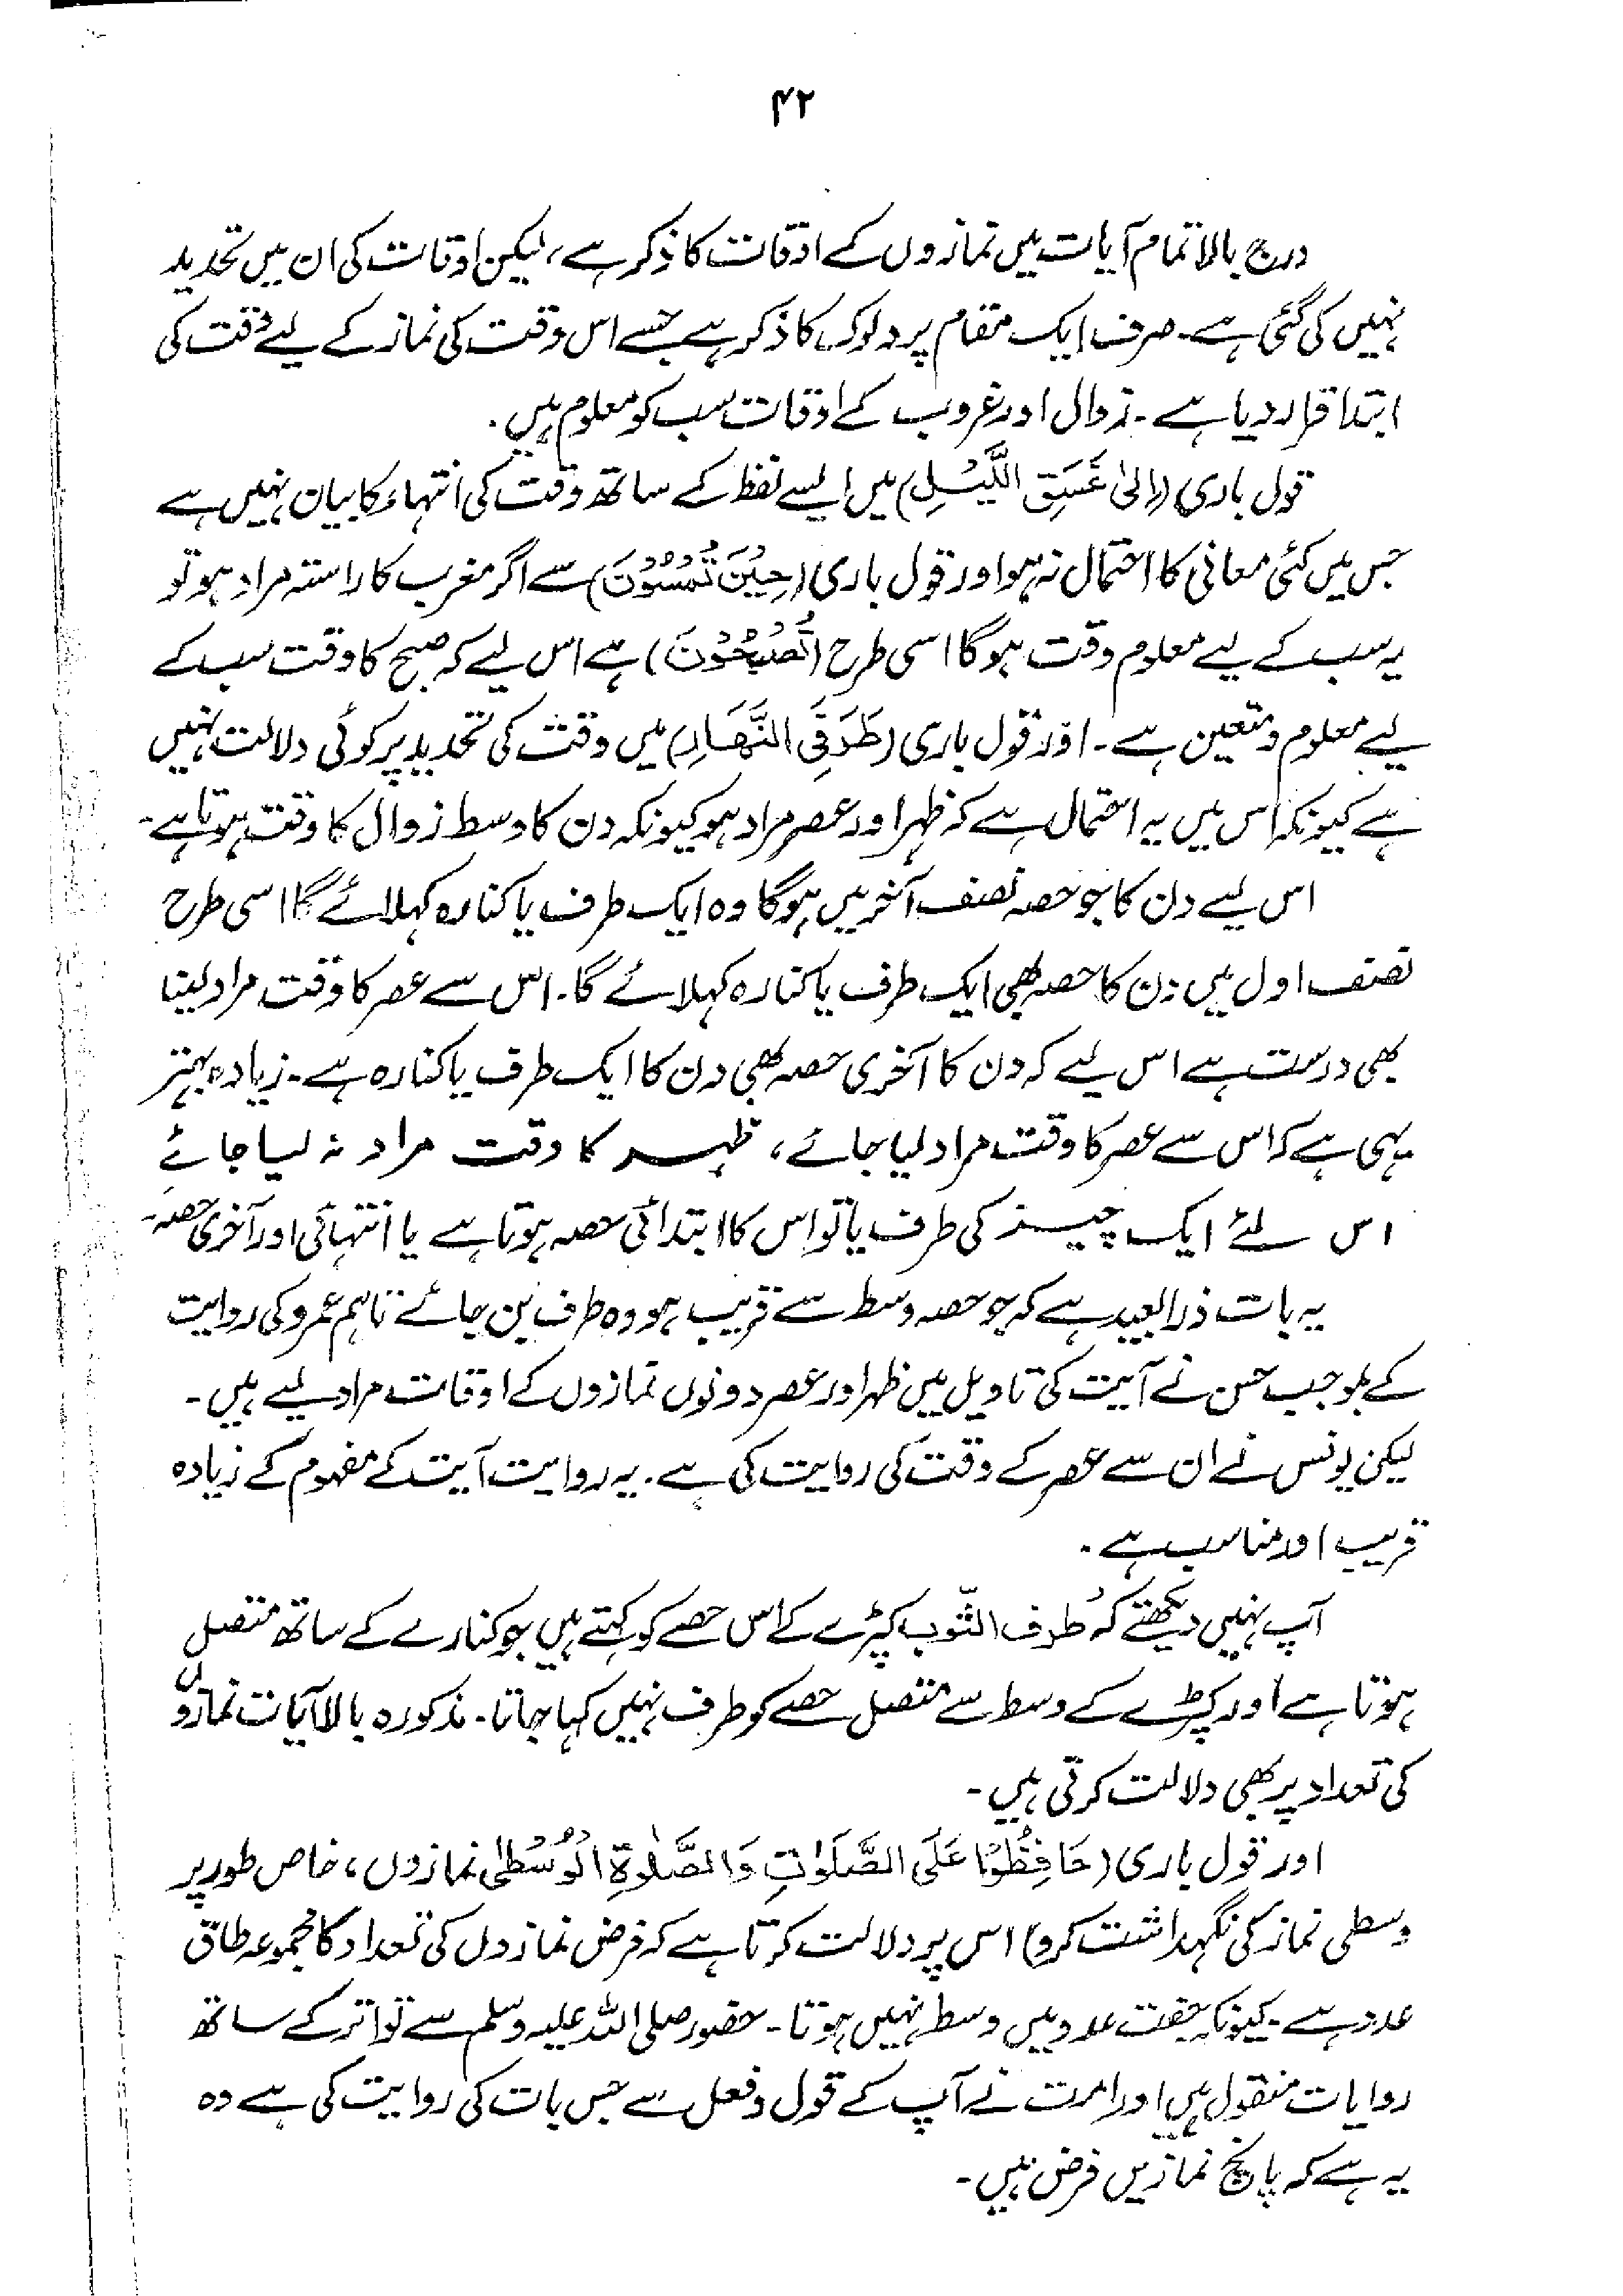 ۴۲
درج بالا تمام آیات میں نمازوں کے اوقات کا ذکر ہے، لیکن اوقات کی ان میں تحدید
نہیں کی گئی ہے۔ صرف ایک مقام پر دلوک کا ذکر ہے جسے اس وقت کی نماز کے لیے وقت کی
ابتدا قرار دیا ہے۔ زوال اور غروب کے اوقات سب کو معلوم ہیں۔
قول باری (اِلیٰ غَسَقِ اللَّیْلِ) میں ایسے لفظ کے ساتھ وقت کی انتہاء کا بیان نہیں ہے
جس میں کئی معانی کا احتمال نہ ہو اور قول باری (حِیْنَ تُمْسُوْنَ) سے اگر مغرب کا راستہ مراد ہو تو
یہ سب کے لیے معلوم وقت ہوگا اسی طرح (تُصْبِحُوْنَ) ہے اس لیے کہ صبح کا وقت سب کے
لیے معلوم و متعین ہے۔ اور قول باری (طَرَفَیِ النَّھَارِ) میں وقت کی تحدید پر کوئی دلالت نہیں
ہے کیونکہ اس میں یہ احتمال ہے کہ ظہر اور عصر مراد ہو کیونکہ دن کا وسط زوال کا وقت ہوتا ہے۔
اس لیے دن کا جو حصہ نصف آخر میں ہوگا وہ ایک طرف یا کنارہ کہلائے گا اسی طرح
نصف اول میں دن کا حصہ بھی ایک طرف یا کنارہ کہلائے گا۔ اس سے عصر کا وقت مراد لینا
بھی درست ہے اس لیے کہ دن کا آخری حصہ بھی دن کا ایک طرف یا کنارہ ہے۔ زیادہ بہتر
یہی ہے کہ اس سے عصر کا وقت مراد لیا جائے، ظہر کا وقت مراد نہ لیا جائے
اس لئے ایک چیز کی طرف یا تو اس کا ابتدائی حصہ ہوتا ہے یا انتہائی اور آخری حصہ۔
یہ بات ذرا بعید ہے کہ جو حصہ وسط سے قریب ہو وہ طرف بن جائے تاہم عمرو کی روایت
کے بموجب حسن نے آیت کی تاویل میں ظہر اور عصر دونوں نمازوں کے اوقات مراد لیے ہیں۔
لیکن یونس نے ان سے عصر کے وقت کی روایت کی ہے۔ یہ روایت آیت کے مفہوم کے زیادہ
قریب اور مناسب ہے۔
آپ نہیں دیکھتے کہ طرف الثّوب کپڑے کے اس حصے کو کہتے ہیں جو کنارے کے ساتھ متصل
ہوتا ہے اور کپڑے کے وسط سے متصل حصے کو طرف نہیں کہا جاتا۔ مذکورہ بالا آیات نمازوں
کی تعداد پر بھی دلالت کرتی ہیں۔
اور قول باری (حَافِظُوْا عَلَی الصَّلَوٰتِ وَالصَّلٰوۃِ الْوُسْطٰی نمازوں، خاص طور پر
وسطی نماز کی نگہداشت کرو) اس پر دلالت کرتا ہے کہ فرض نمازوں کی تعداد کا مجموعہ طاق
عدد ہے۔ کیونکہ جفت عدد میں وسط نہیں ہوتا۔ حضور صلی اللہ علیہ وسلم سے تواتر کے ساتھ
روایات منقول ہیں اور امت نے آپ کے قول و فعل سے جس بات کی روایت کی ہے وہ
یہ ہے کہ پانچ نمازیں فرض ہیں۔